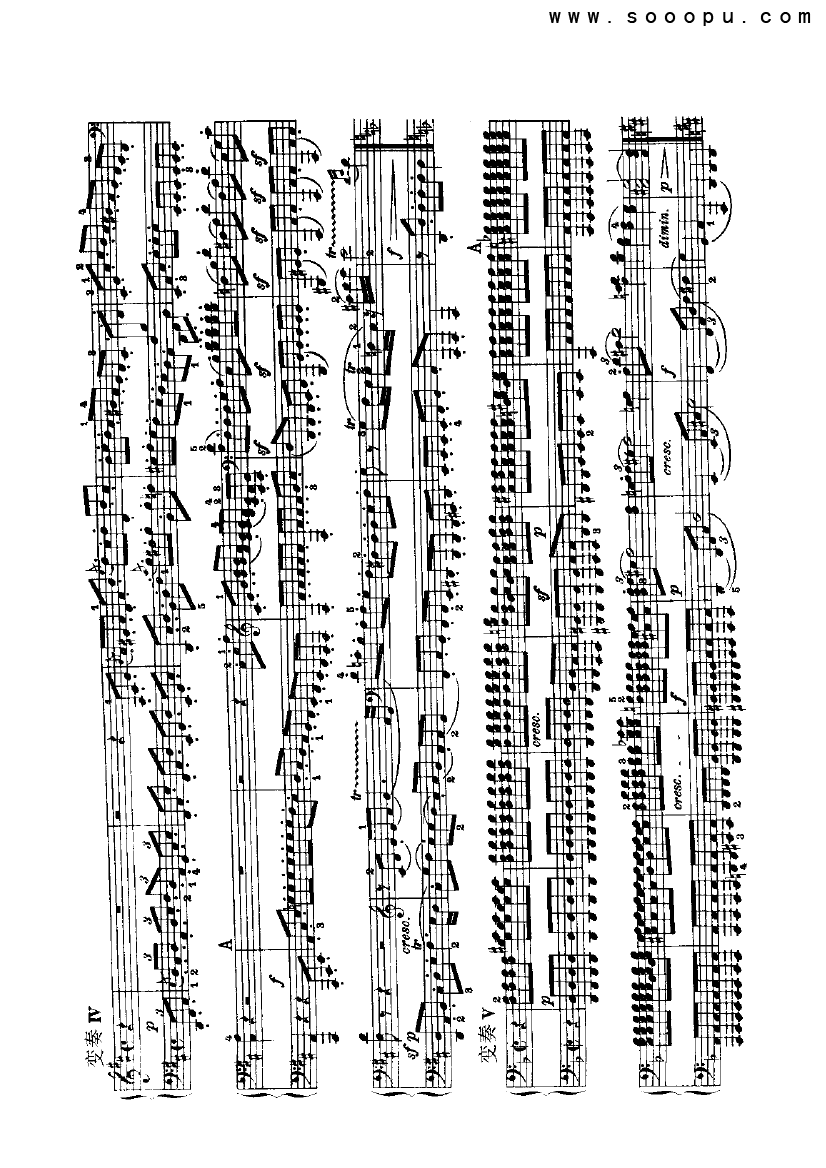 www.sooopu.com
变奏 IV
p
A
f
sf sf sf sf sf sf
sf p
cresc.
tr
tr
tr tr
tr
f
变奏 V
p
cresc.
sf
p
A
cresc. - -
f
p
cresc.
f
dimin.
p